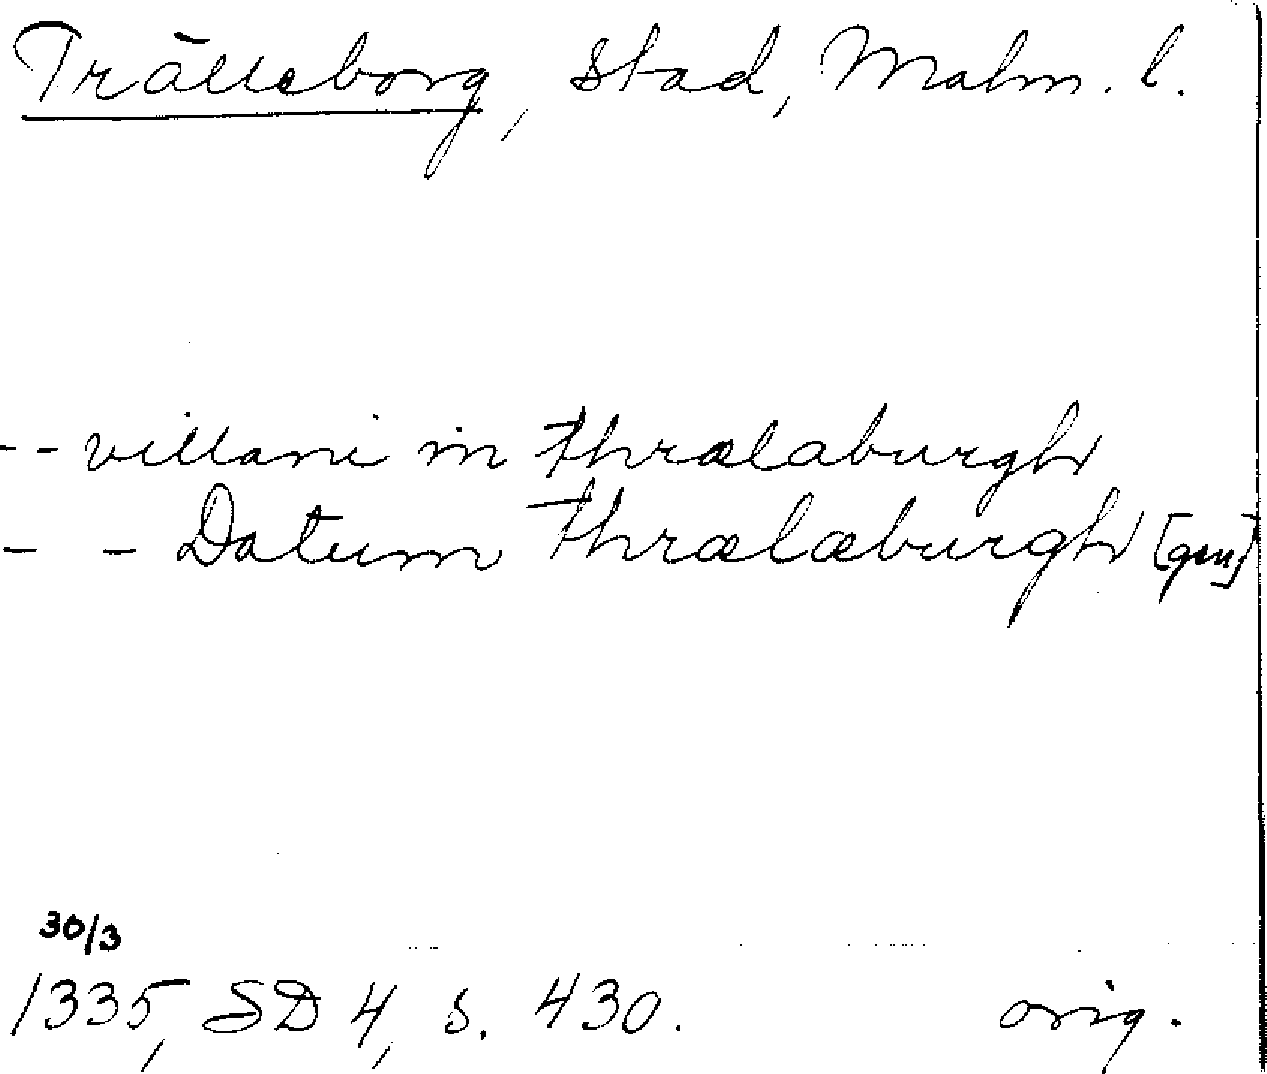 Trälleborg, stad, Malm. l.
-- villani in thrælaburgh
- - Datum thrælæburgh [qm]
30/3
1335, SD 4, s. 430. orig.